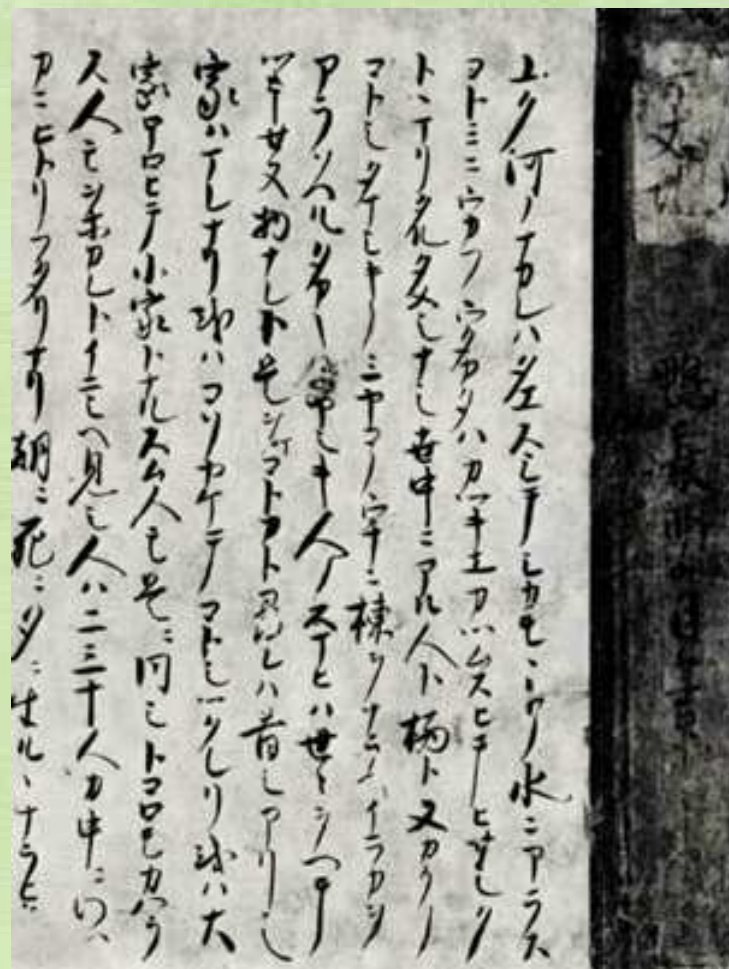 方丈記
鴨長明自筆
ユク河ノナカレハタエスシテシカモヽトノ水ニアラス
ヨトミニウカフウタカタハカツキエカツムスヒテヒサシク
トヽマリタルタメシナシ世中ニアル人ト栖ト又カクノ
コトシタマシキノミヤコノウチニ棟ヲナラヘイラカヲ
アラソヘルタカキイヤシキ人ノスマヒハ世々ヲヘテ
ツキセヌ物ナレト是ヲマコトカト尋レハ昔シアリシ
家ハマレナリ或ハコソヤケテコトシツクレリ或ハ大
家ホロヒテ小家トナルスム人モ是ニ同シトコロモカハラ
ス人モヲホカレトイニシヘ見シ人ハ二三十人カ中ニワツ
カニヒトリフタリナリ朝ニ死ニ夕ニ生ルヽナラヒ